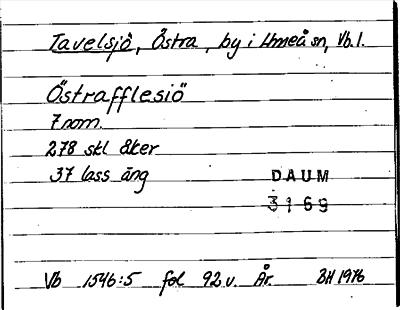 Tavelsjö, Östra, by i Umeå sn, Vb. l.
Östrafflesiö
7 nom.
278 skl åker
37 lass äng
DAUM
3169
Vb 1546:5 fol 92 v. År. BH 1976